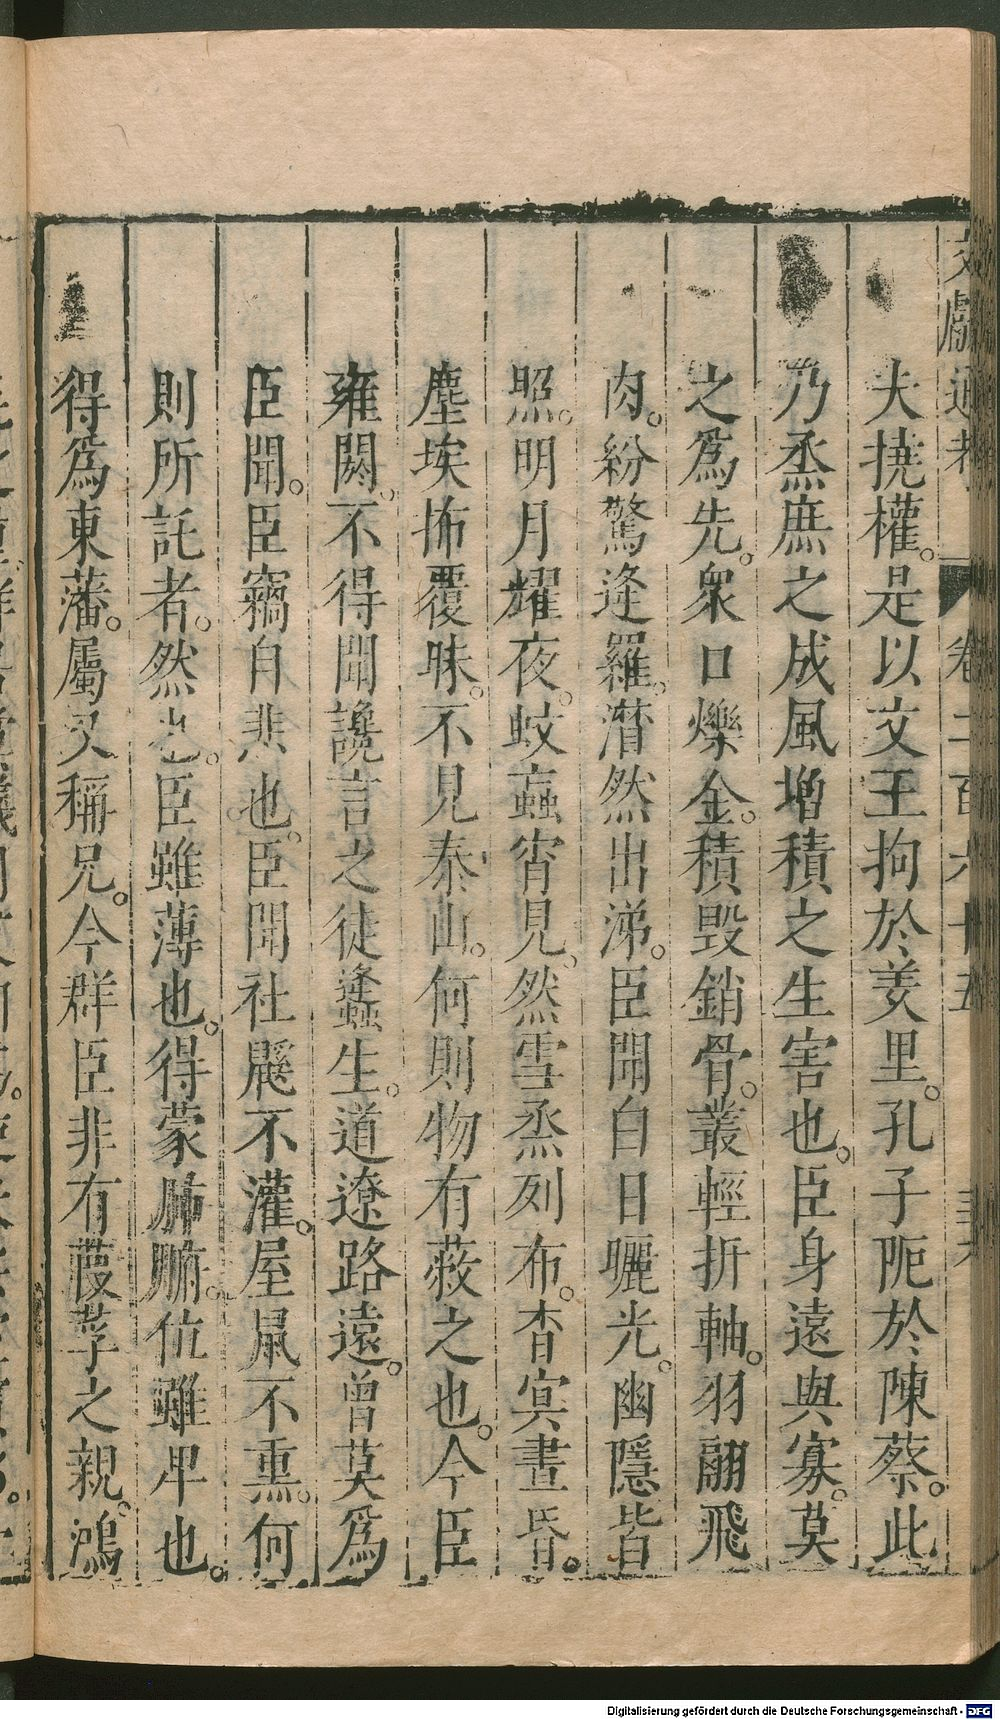 文獻通考 卷二百六十五
夫撓權。是以文王拘於羑里。孔子阨於陳蔡。此
乃烝庶之成風增積之生害也。臣身遠與寡。莫
之爲先。衆口爍金。積毀銷骨。叢輕折軸。羽翮飛
肉。紛驚逢羅。潸然出涕。臣聞白日曬光。幽隱皆
照。明月耀夜。蚊蝱宵見。然雲烝列布。杳㝠晝昏。
塵埃抪覆昧。不見泰山。何則物有蔽之也。今臣
雍閼。不得聞讒言之徒蠭生。道遼路遠。曾莫爲
臣聞。臣竊自悲也。臣聞社鼷不灌。屋鼠不熏。何
則所託者。然也。臣雖薄也。得蒙肺腑。位雖卑也。
得爲東藩。屬又稱兄。今群臣非有葭莩之親。鴻
Digitalisierung gefördert durch die Deutsche Forschungsgemeinschaft - DFG